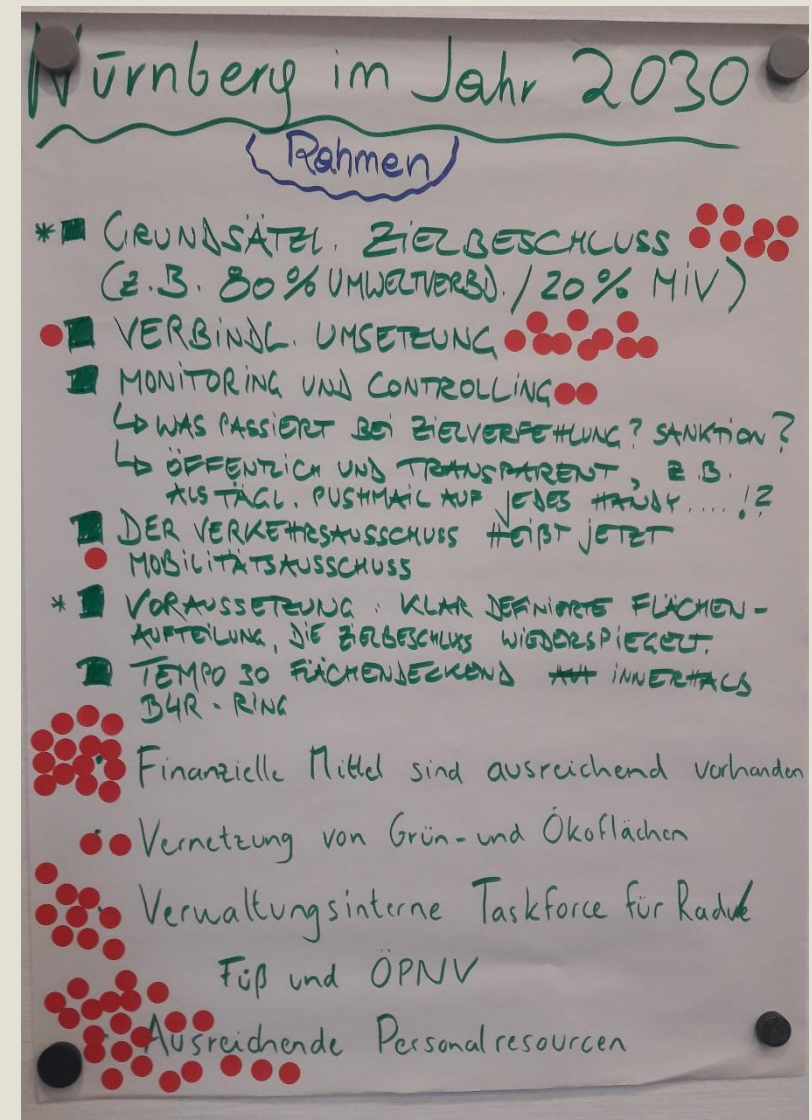 Nürnberg im Jahr 2030
Rahmen
* GRUNDSÄTZL. ZIELBESCHLUSS
(Z.B. 80% UMWELTVERBD. / 20% MIV)
VERBINDL. UMSETZUNG
MONITORING UND CONTROLLING
↳ WAS PASSIERT BEI ZIELVERFEHLUNG? SANKTION?
↳ ÖFFENTLICH UND TRANSPARENT, Z.B.
ALS TÄGL. PUSHMAIL AUF JEDES HANDY....!?
DER VERKEHRSAUSSCHUSS HEIßT JETZT
MOBILITÄTSAUSSCHUSS
* VORAUSSETZUNG: KLAR DEFINIERTE FLÄCHEN-
AUFTEILUNG, DIE ZIELBESCHLUSS WIEDERSPIEGELT.
TEMPO 30 FLÄCHENDECKEND INNERHALB
B4R-RING
Finanzielle Mittel sind ausreichend vorhanden
Vernetzung von Grün- und Ökoflächen
Verwaltungsinterne Taskforce für
Fuß und ÖPNV
Ausreichende Personalresourcen